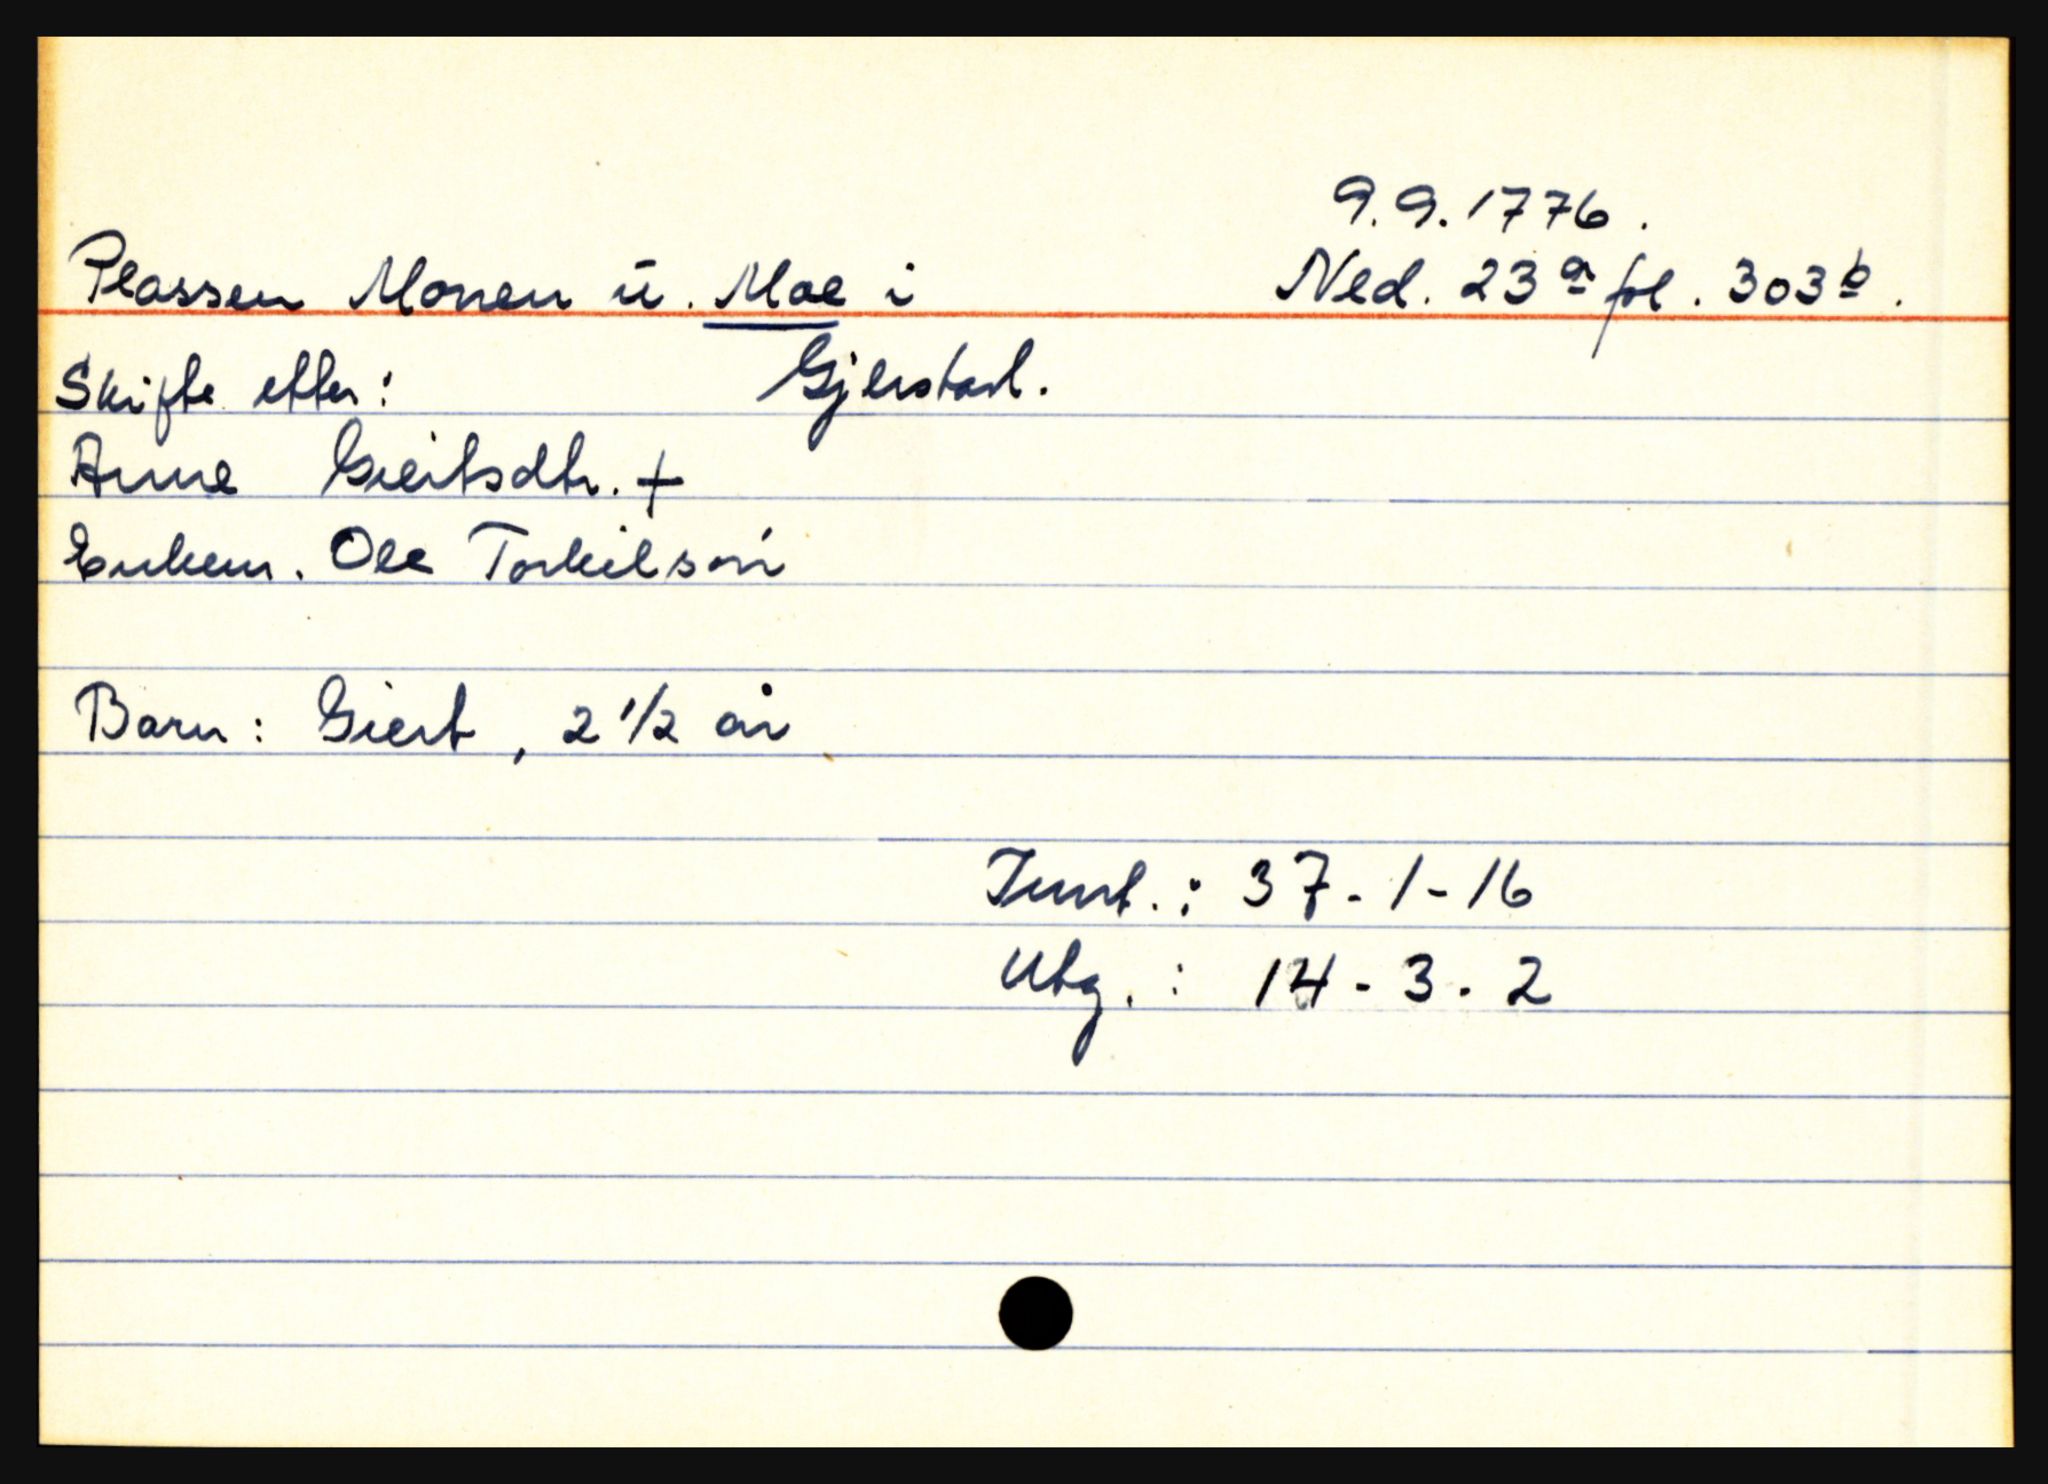 9.9.1776.
Plassen Monen u. Moe i Ned. 23a fol. 303b.
Skifte etter: Gjerstad.
Anne Giertsdtr. +
Enkem. Ole Torkilson
Barn: Giert, 2 1/2 år
Innt.: 37-1-16
Utg.: 14-3-2